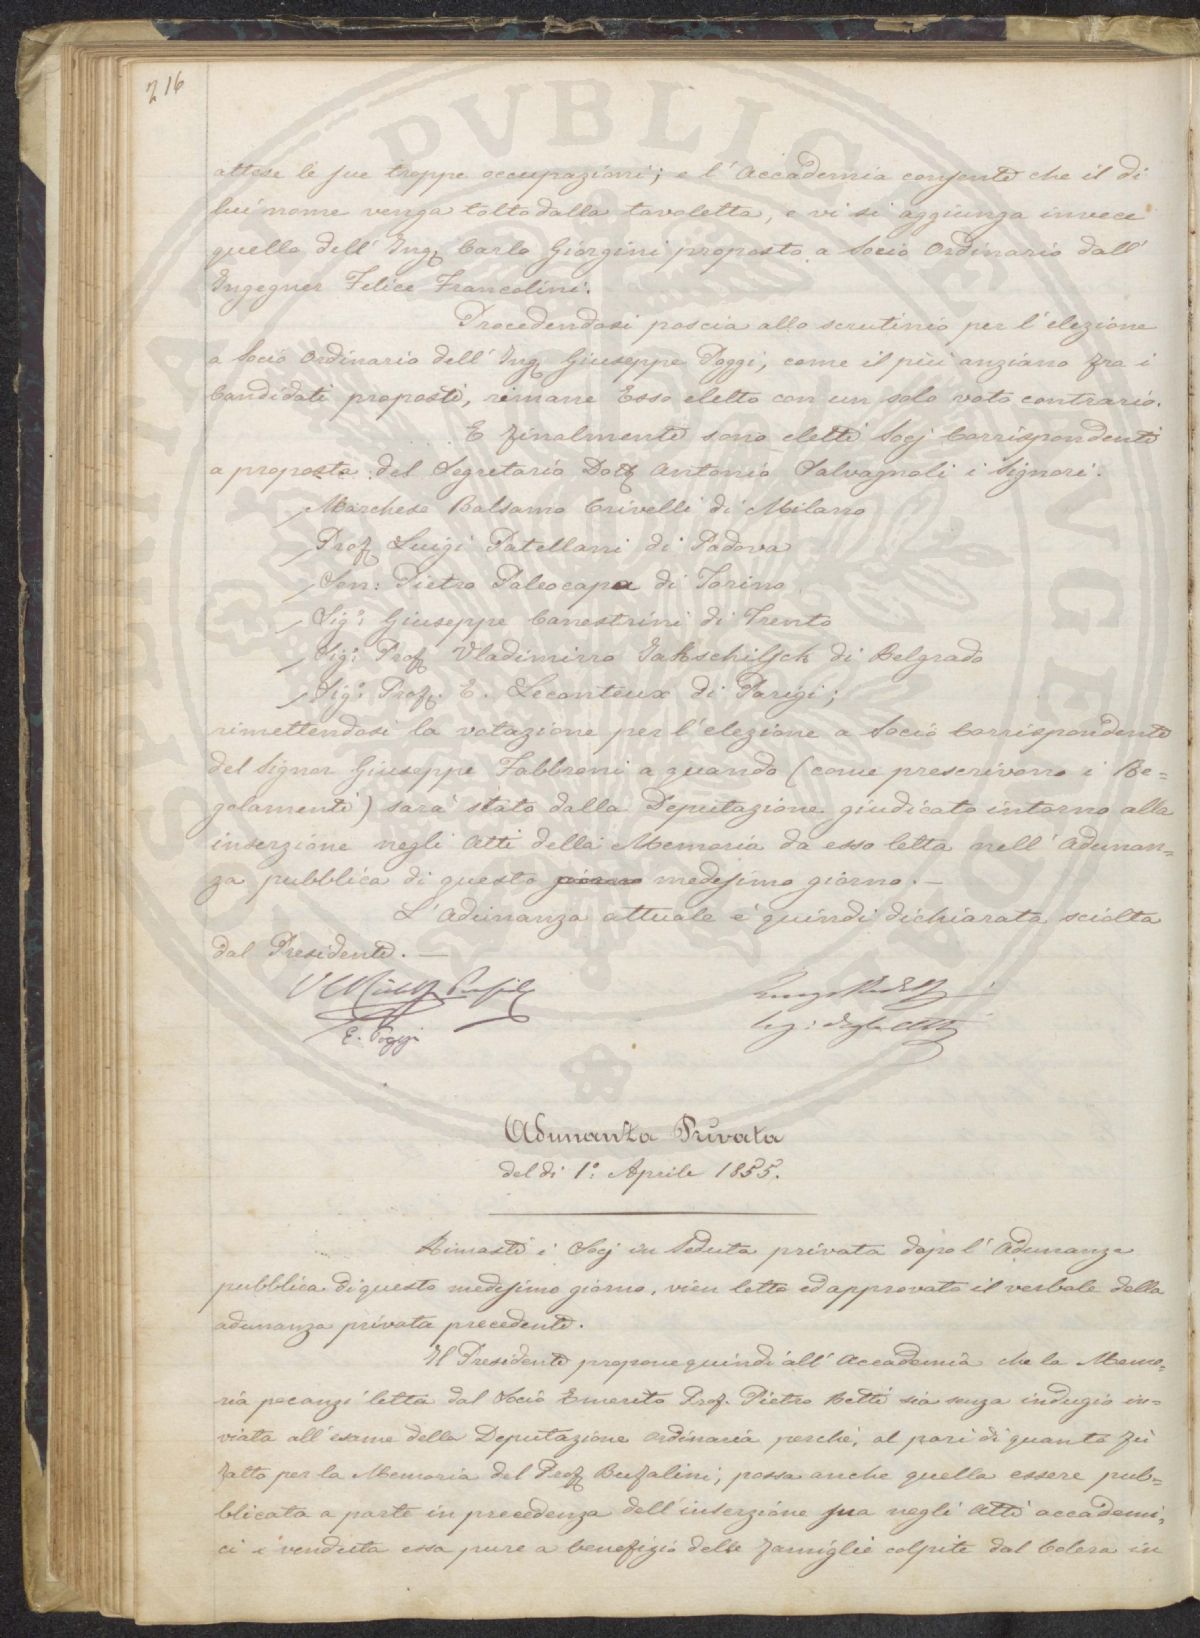 216
attese le sue troppe occupazioni; e l'Accademia consente che il di
lui nome venga tolto dalla tavoletta, e vi si aggiunga invece
quello dell'Ing. Carlo Giorgini proposto a Socio Ordinario dall'
Ingegner Felice Francolini.
Procedendosi poscia allo scrutinio per l'elezione
a Socio Ordinario dell'Ing. Giuseppe Poggi, come il più anziano fra i
Candidati proposti, rimane Esso eletto con un solo voto contrario.
E finalmente sono eletti Socj Corrispondenti
a proposta del Segretario Dott. Antonio Salvagnoli i Signori.
Marchese Balsamo Crivelli di Milano
Prof. Luigi Patellani di Padova
Sen: Pietro Paleocapa di Torino
Sig: Giuseppe Canestrini di Trento
Sig: Prof. Vladimirro Jakschitsch di Belgrado
Sig: Prof. E. Leconteux di Parigi;
rimettendosi la votazione per l'elezione a Socio Corrispondente
del Signor Giuseppe Fabbroni a quando (come prescrivono i Re=
golamenti) sarà stato dalla Deputazione giudicato intorno alla
inserzione negli Atti della Memoria da esso letta nell'Adunan=
za pubblica di questo giorno medesimo giorno. —
L'Adunanza attuale è quindi dichiarata sciolta
dal Presidente. —
E. Poggi
Adunanza Privata
del di 1°: Aprile 1855.
Rimasti i Socj in Seduta privata dopo l'Adunanza
pubblica di questo medesimo giorno, vien letto ed approvato il verbale della
adunanza privata precedente.
Il Presidente propone quindi all'Accademia che la Memo=
ria pocanzi letta dal Socio Emerito Prof. Pietro Betti sia senza indugio in=
viata all'esame della Deputazione Ordinaria perchè, al pari di quanto fù
fatto per la Memoria del Prof. Bufalini, possa anche quella essere pub=
blicata a parte in precedenza dell'inserzione sua negli Atti accademi,
ci e venduta essa pure a benefizio delle famiglie colpite dal Colera in
SOCIETATIS PVBLICE VIGENTI